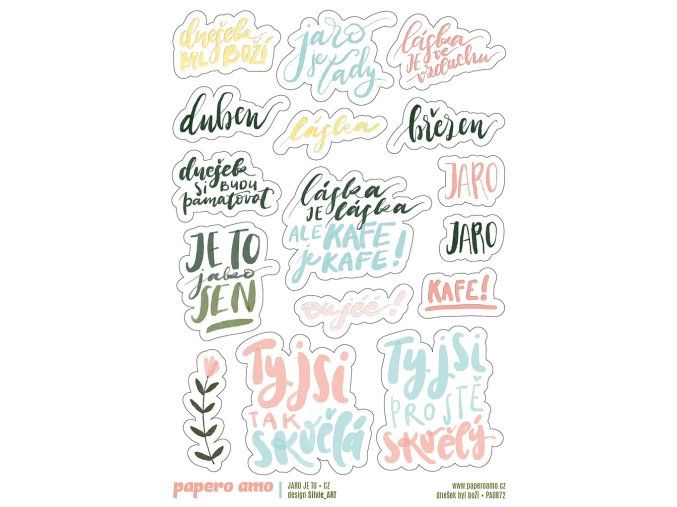 dnešek
BYL BOŽÍ
jaro
je
tady
láska
JE ve
vzduchu
duben
láska
březen
dnešek
SI BUDU
pamatovat
láska
JE láska
ALE KAFE
je KAFE!
JARO
JARO
JE TO
jako
SEN
oujéé!
KAFE!
Ty jsi
TAK
skvělá
Ty jsi
PROSTĚ
skvělý
papero amo
JARO JE TU • CZ
design Silvie_ART
www.paperoamo.cz
dnešek byl boží • PA0872